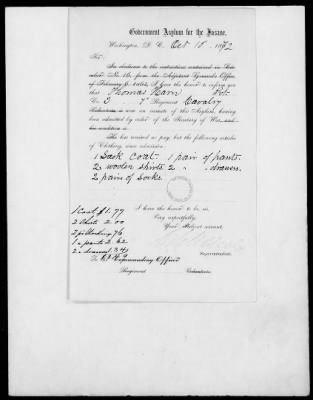 Government Asylum for the Insane,
Washington, D. C., Oct 18 1872
Sir:
In obedience to the instructions contained in Circular
No. 16, from the Adjutant General's Office,
of February 6, 1862, I have the honor to inform you
that Thomas Harn Pvt.
Co. 7th Regiment Cavalry
Volunteers is now an inmate of this Asylum, having
been admitted by order of the Secretary of War
He has received no pay, but the following articles
of Clothing, since admission:
1 Sack Coat. 1 pair of pants.
2 woolen shirts 2 " drawers.
2 pair of socks
I have the honor to be, sir,
Very respectfully,
Your obedient servant,
Superintendent.
1 Coat, $1.77
2 Shirts 2 00
2 pr Stocking 76
1 " pants 2 62
2 " drawers
To Commanding Officer
Regiment Volunteers.